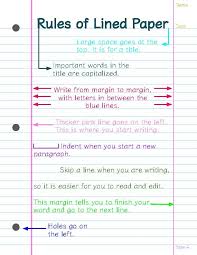 Name
Date
Rules of Lined Paper
Large space goes at the
top. It is for a title.
Important words in the
title are capitalized.
Write from margin to margin,
with letters in between the
blue lines.
Thicker pink line goes on the left.
This is where you start writing.
Indent when you start a new
paragraph.
Skip a line when you are writing,
so it is easier for you to read and edit.
This margin tells you to finish your
word and go to the next line.
Holes go on
the left.